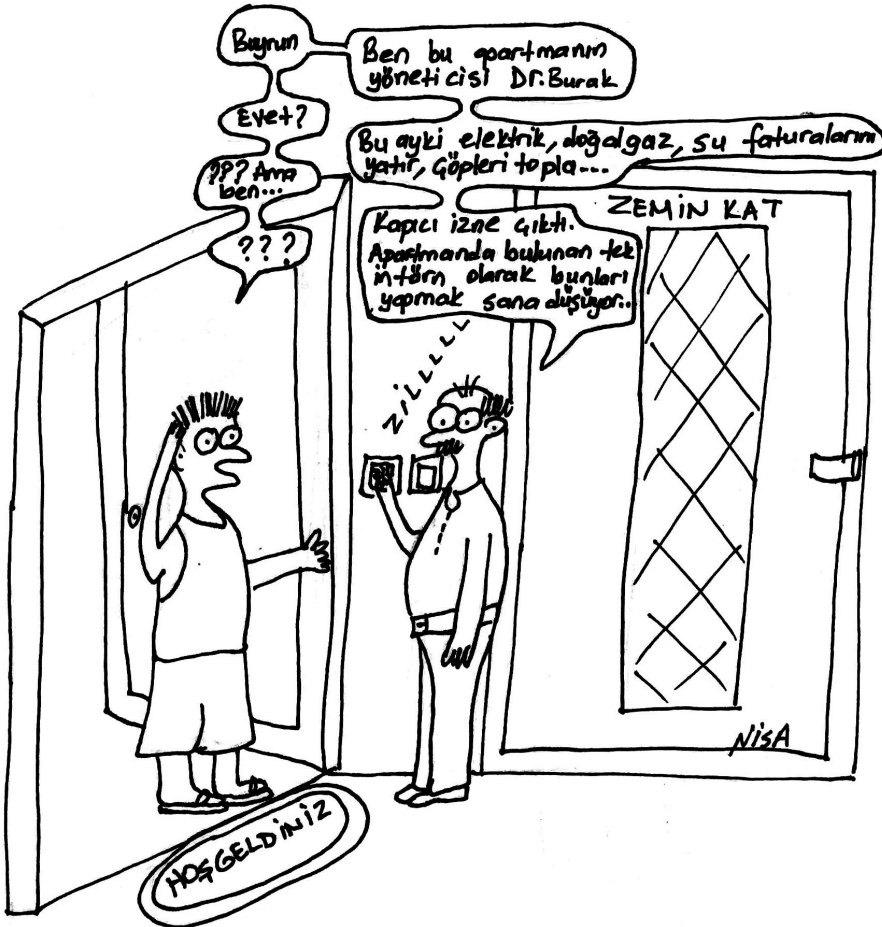 Buyrun
Ben bu apartmanın
yöneticisi Dr. Burak
Evet?
Bu ayki elektrik, doğalgaz, su faturalarını
yatır, Çöpleri topla...
??? Ama
ben...
Kapıcı izne çıktı.
Apartmanda bulunan tek
intörn olarak bunları
yapmak sana düşüyor...
???
ZEMİN KAT
ZİLLLLL
HOŞGELDİNİZ
NİSA